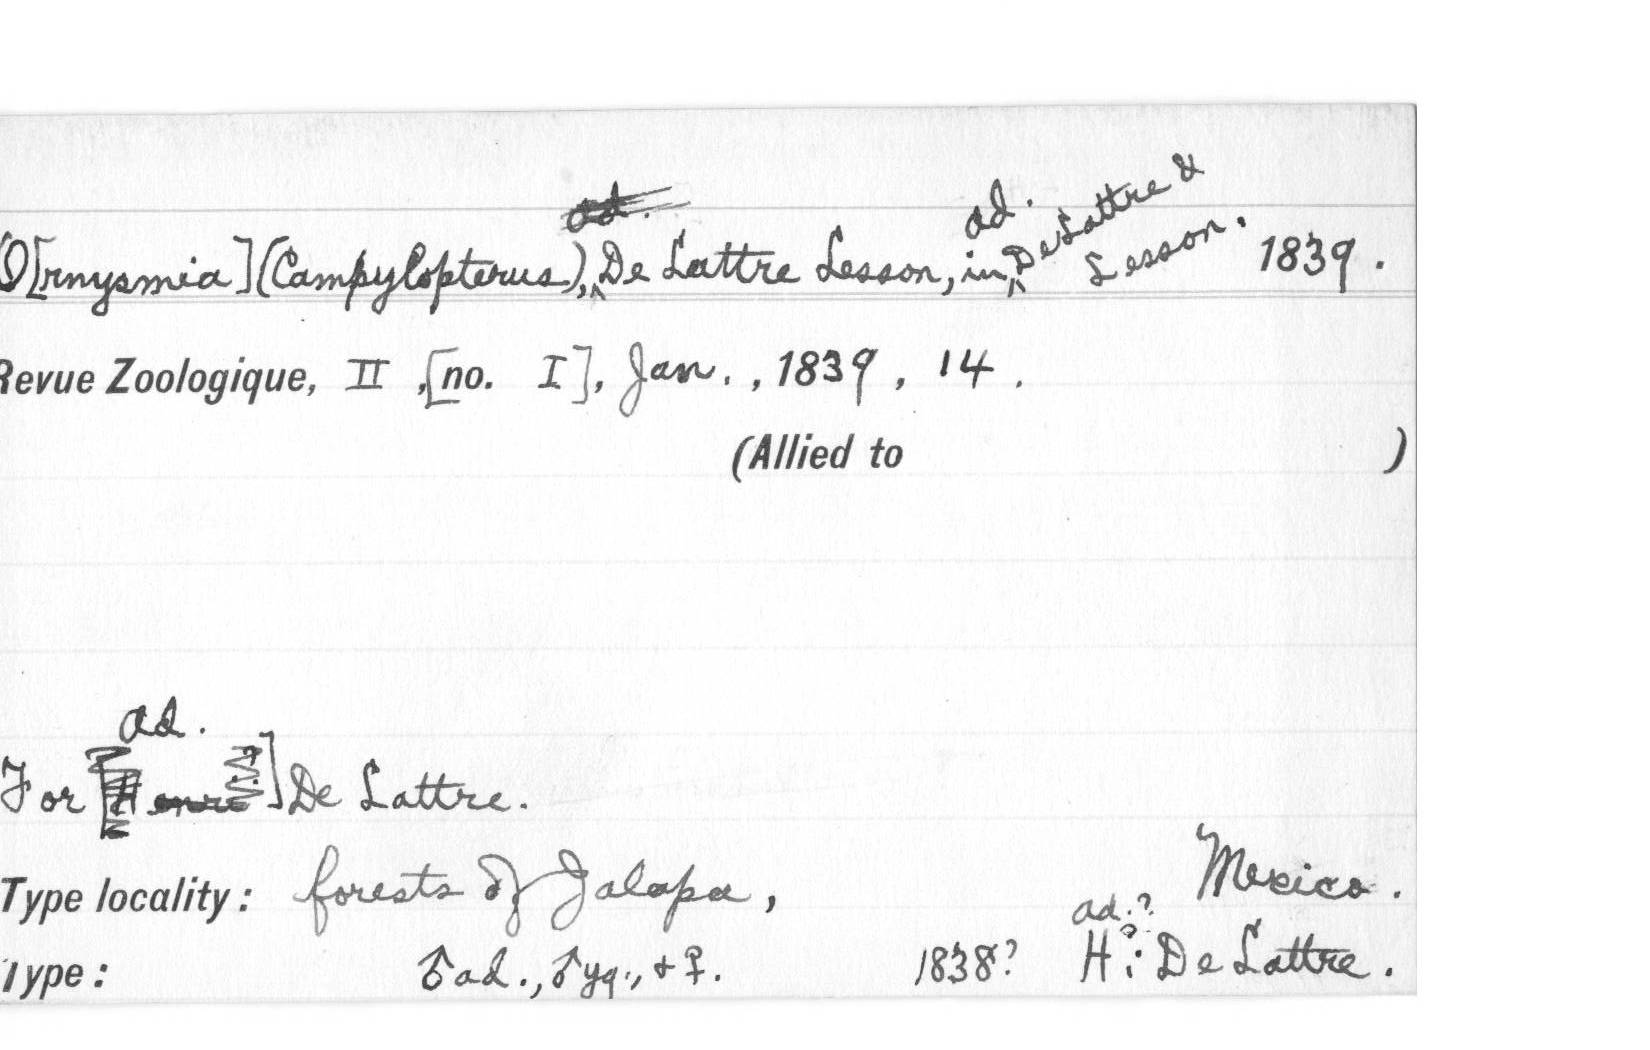 ad.
ad. De Lattre &
O[rnysmia](Campylopterus), De Lattre Lesson, in Lesson. 1839.
Revue Zoologique, II, [no. I], Jan., 1839, 14.
(Allied to )
ad.
For [Henri] De Lattre.
Type locality: forests of Jalapa, Mexico.
ad.?
Type: ♂ad., ♂yg., + ♀. 1838? H. De Lattre.